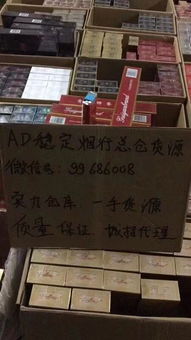 AD稳定烟行总仓货源
微信号: 99686008
实力仓库 一手货源
质量保证 城招代理